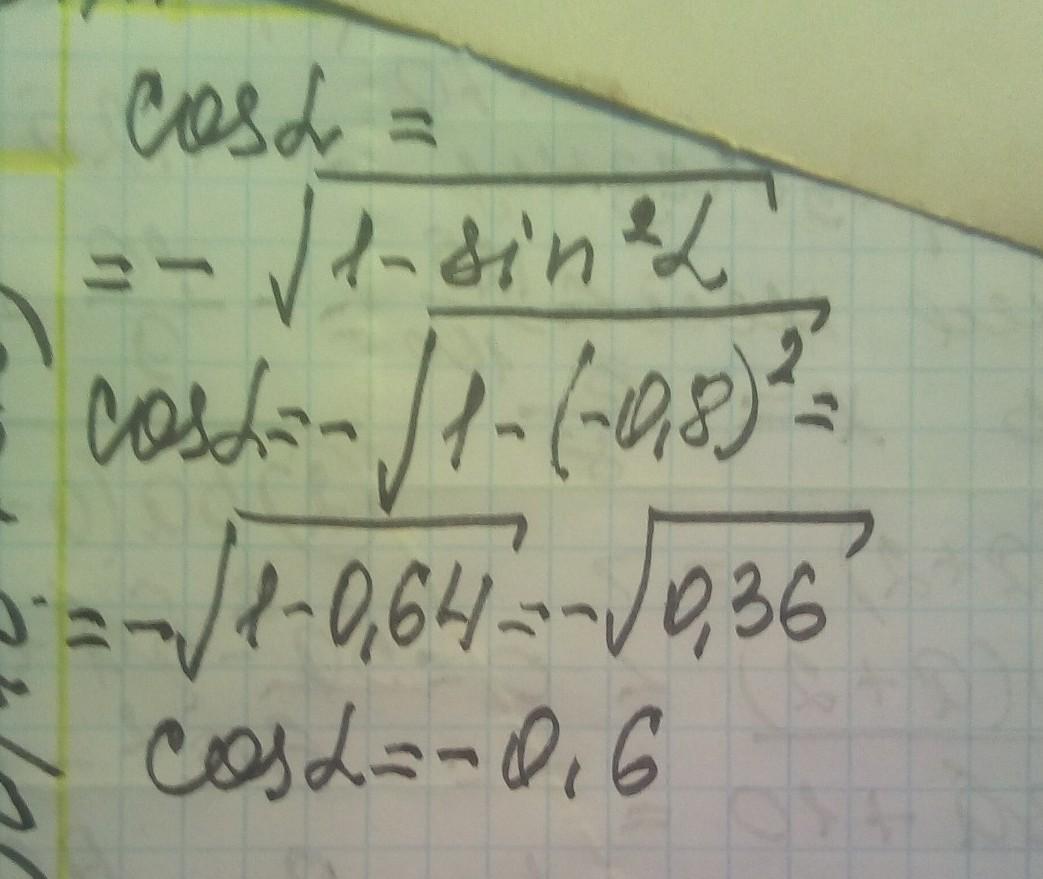 cosα =
= - √(1 - sin²α)
cosα = - √(1 - (-0,8)²) =
= - √(1 - 0,64) = - √(0,36)
cosα = - 0,6